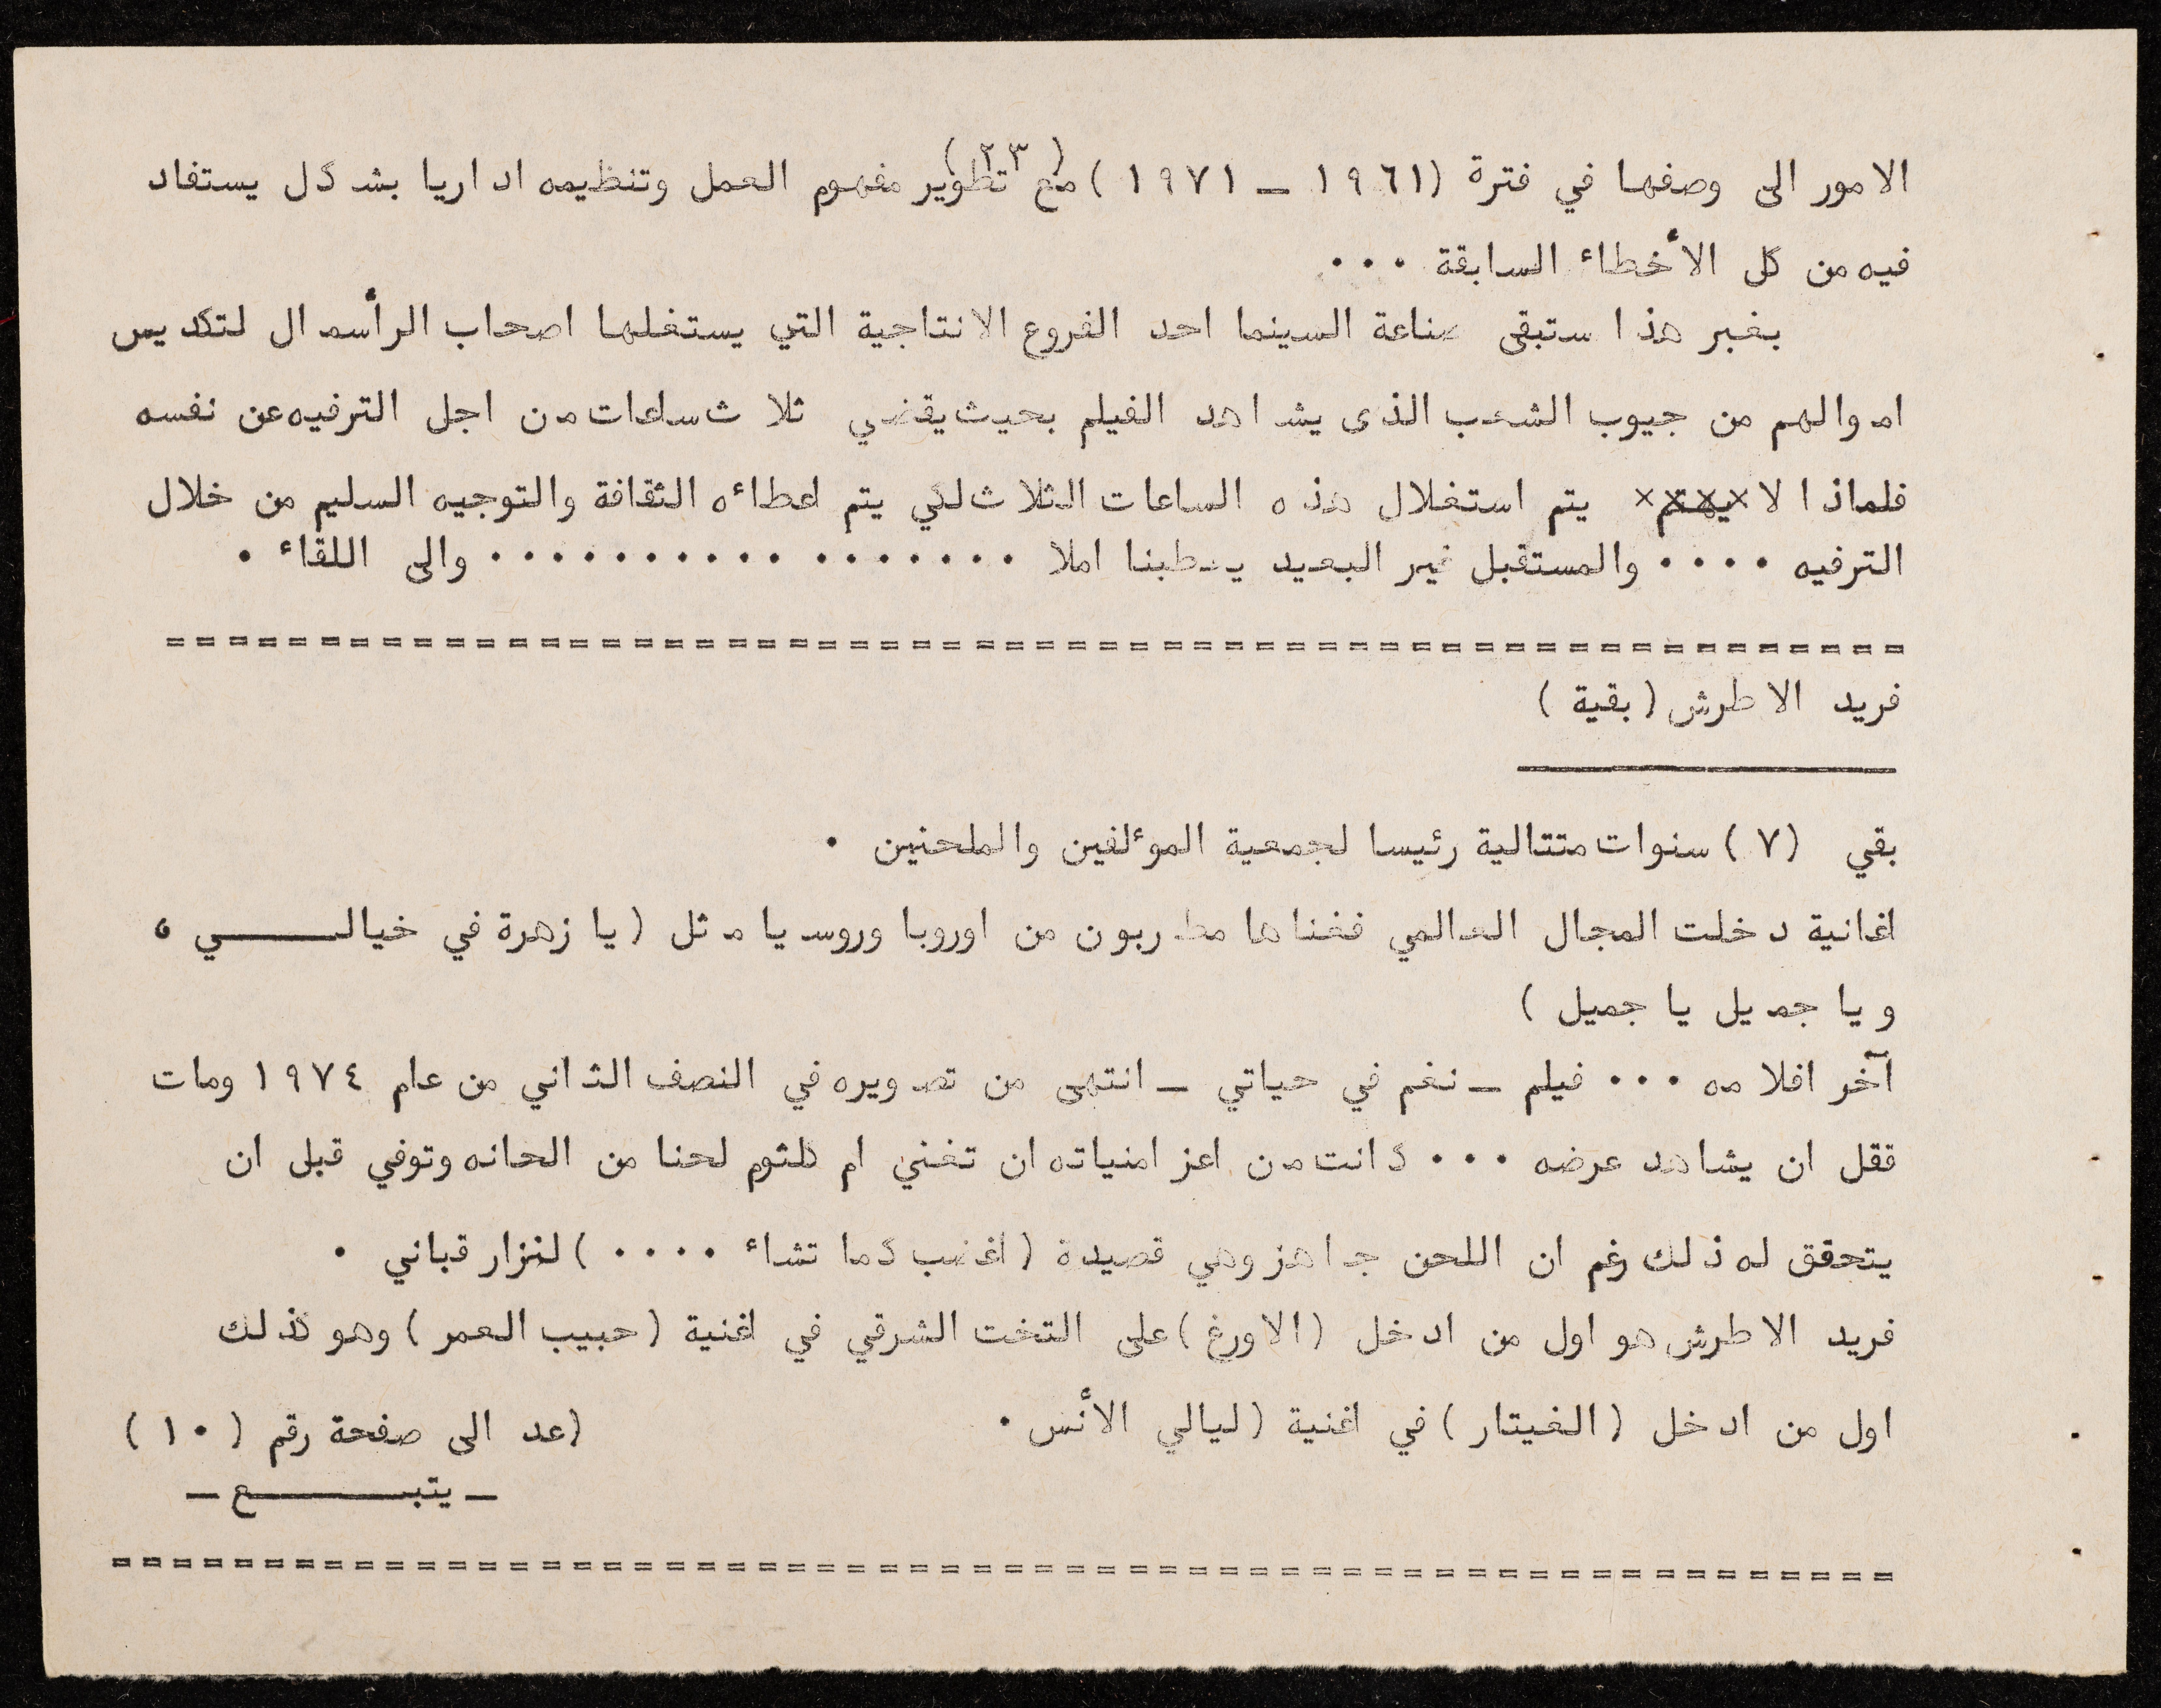 (٢٣)
الامور الى وصفها في فترة (١٩٦١ ــ ١٩٧١) مع تطوير مفهوم العمل وتنظيمه اداريا بشكل يستفاد
فيه من كل الأخطاء السابقة ٠٠٠
بغير هذا ستبقى صناعة السينما احد الفروع الانتاجية التي يستغلها اصحاب الرأسمال لتكديس
اموالهم من جيوب الشعب الذى يشاهد الفيلم بحيث يقضي ثلاث ساعات من اجل الترفيه عن نفسه
فلماذا لا يتم استغلال هذه الساعات الثلاث لكي يتم اعطائه الثقافة والتوجيه السليم من خلال
الترفيه ٠٠٠٠ والمستقبل غير البعيد يعطينا املا ٠٠٠٠٠٠٠٠٠٠٠٠٠٠٠٠ والى اللقاء ٠
==========================================================
فريد الاطرش (بقية)
بقي (٧) سنوات متتالية رئيسا لجمعية الموءلفين والملحنين ٠
اغانية دخلت المجال العالمي فغناها مطربون من اوروبا وروسيا مثل (يا زهرة في خيالـــــي ،
ويا جميل يا جميل)
آخر افلامه ٠٠٠ فيلم ــ نغم في حياتي ــ انتهى من تصويره في النصف الثاني من عام ١٩٧٤ ومات
ققل ان يشاهد عرضه ٠٠٠ كانت من اعز امنياته ان تغني ام كلثوم لحنا من الحانه وتوفي قبل ان
يتحقق له ذلك رغم ان اللحن جاهز وهي قصيدة (اغضب كما تشاء ٠٠٠٠) لنزار قباني ٠
فريد الاطرش هو اول من ادخل (الاورغ) على التخت الشرقي في اغنية (حبيب العمر) وهو كذلك
اول من ادخل (الغيتار) في اغنية (ليالي الأنس ٠
(عد الى صفحة رقم (١٠)
ــ يتبـــــــع ــ
==========================================================